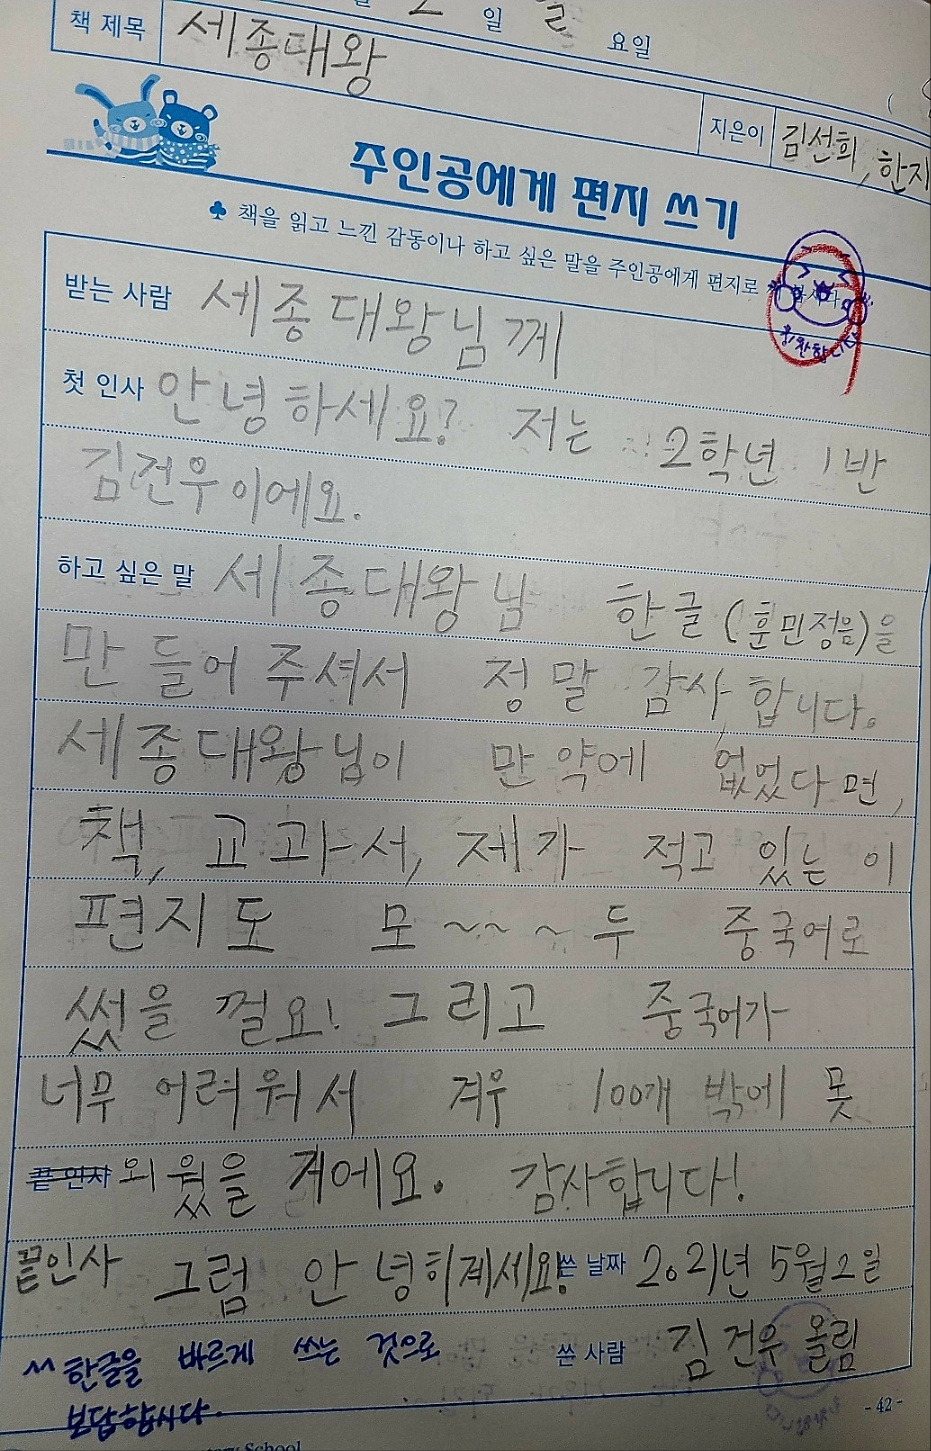 2 일 요일
책 제목 세종대왕
지은이 김선희, 한지
주인공에게 편지 쓰기
♣ 책을 읽고 느낀 감동이나 하고 싶은 말을 주인공에게 편지로
받는 사람 세종대왕님께
첫 인사 안녕하세요? 저는 2학년 1반
김건우이에요.
하고 싶은 말 세종대왕님 한글(훈민정음)을
만들어 주셔서 정말 감사합니다.
세종대왕님이 만약에 없었다면,
책, 교과서, 제가 적고 있는 이
편지도 모~~~두 중국어로
썼을 껄요! 그리고 중국어가
너무 어려워서 겨우 100개 밖에 못
끝 인사 외웠을 거에요. 감사합니다!
끝인사 그럼 안녕히계세요! 쓴 날짜 2021년 5월2일
쓴 사람 김건우 올림
한글을 바르게 쓰는 것으로
보답합시다.
- 42 -
School